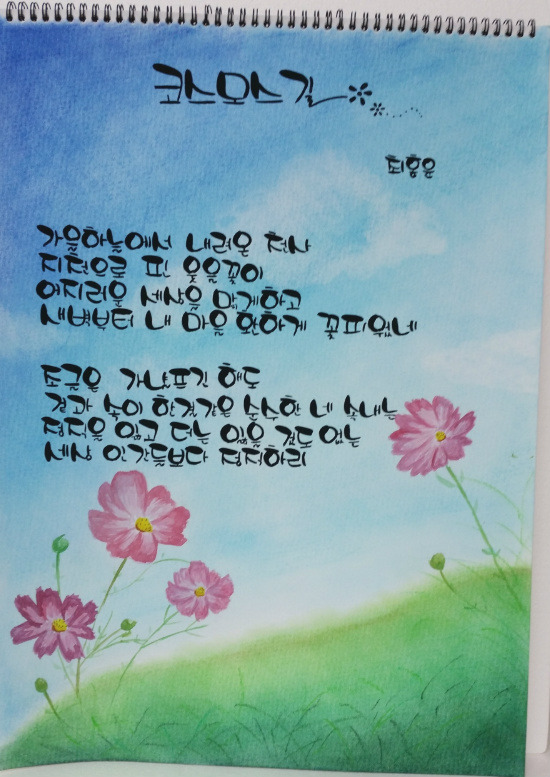 코스모스길
최홍윤
가을하늘에서 내려온 천사
지천으로 핀 웃을꽃이
어지러운 세상을 맑게하고
새벽부터 내 마을 환하게 꽃피웠네
조금은 가냘프긴 해도
겉과 속이 한결같은 순수한 네 속내는
정적을 잃고 더는 잃을 것도 없는
세상 인간들보다 정직하리